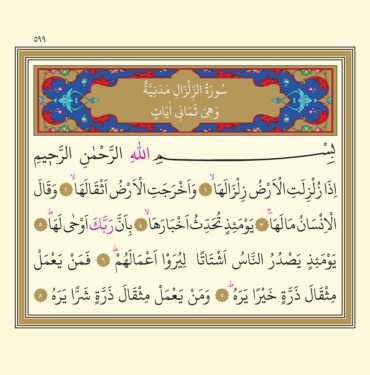 ٥٩٩
سُورَةُ الزِّلْزَالِ مَدَنِيَّةٌ
وَهِيَ ثَمَانِي اٰيَاتٍ
بِسْمِ اللّٰهِ الرَّحْمٰنِ الرَّحِيمِ
اِذَا زُلْزِلَتِ الْاَرْضُ زِلْزَالَهَاۙ ١ وَاَخْرَجَتِ الْاَرْضُ اَثْقَالَهَاۙ ٢ وَقَالَ
الْاِنْسَانُ مَالَهَاۚ ٣ يَوْمَئِذٍ تُحَدِّثُ اَخْبَارَهَاۙ ٤ بِاَنَّ رَبَّكَ اَوْحٰى لَهَاۜ ٥
يَوْمَئِذٍ يَصْدُرُ النَّاسُ اَشْتَاتًا لِيُرَوْا اَعْمَالَهُمْۜ ٦ فَمَنْ يَعْمَلْ
مِثْقَالَ ذَرَّةٍ خَيْرًا يَرَهُۜ ٧ وَمَنْ يَعْمَلْ مِثْقَالَ ذَرَّةٍ شَرًّا يَرَهُ ٨